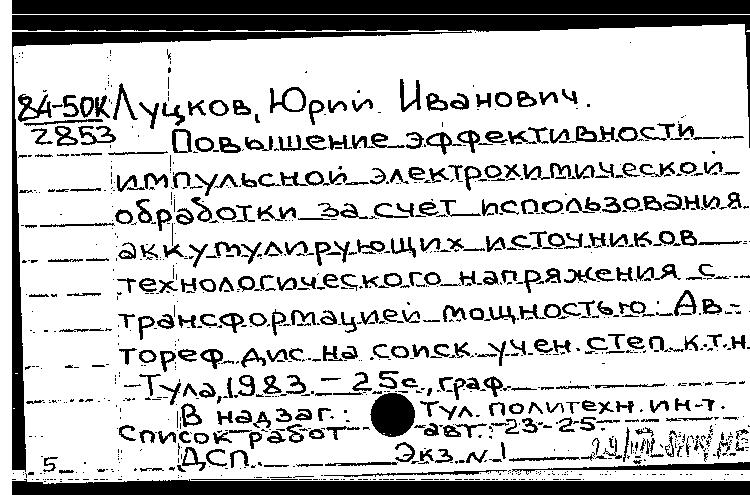 84-50К Луцков, Юрий Иванович.
2853 Повышение эффективности
импульсной электрохимической
обработки за счет использования
аккумулирующих источников
технологического напряжения с
трансформацией мощностью: Ав-
тореф дис на соиск учен. степ к.т.н
-Тула, 1983. - 25с., граф.
В надзаг.: Тул. политехн. ин-т.
Список работ авт.: 23-25
5 ДСП. Экз N 1